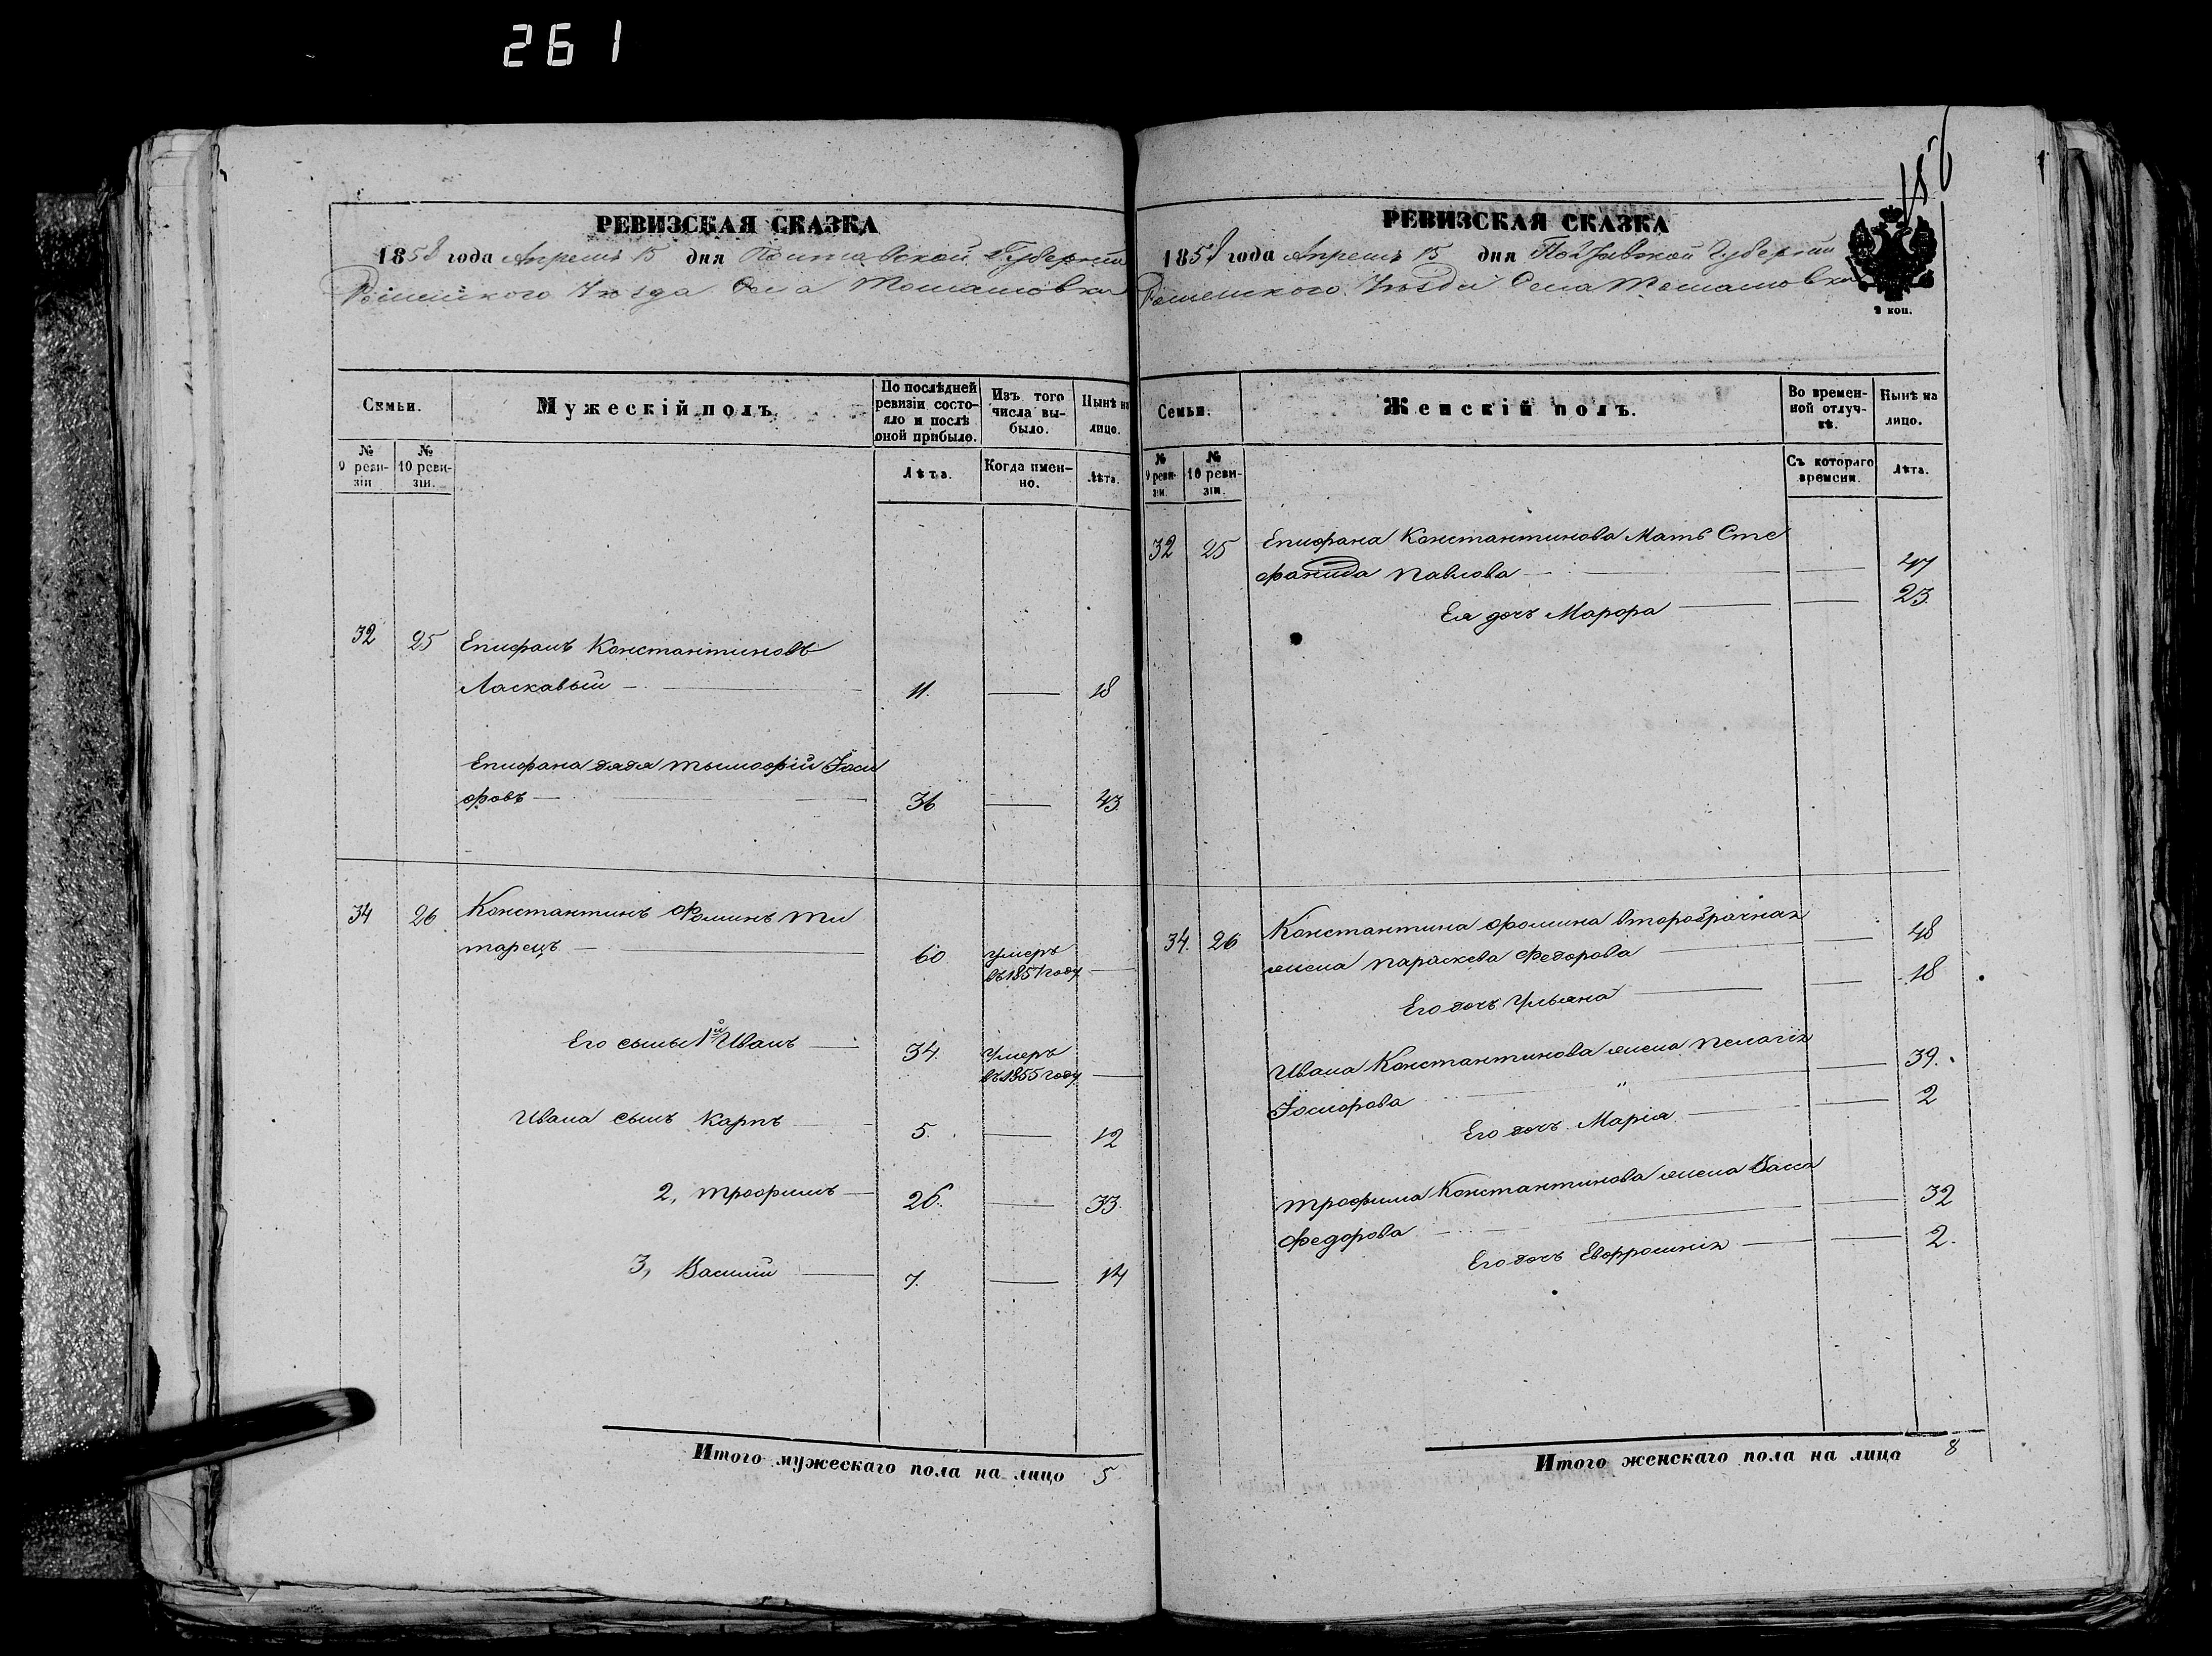 261
РЕВИЗСКАЯ СКАЗКА
1858 года Апреля 15 дня Полтавской Губернии
Роменского Уѣзда Села Томашовки
Семьи.
Мужескій полъ.
По послѣдней ревизіи состояло и послѣ оной прибыло.
Изъ того числа выбыло.
Нынѣ на лицо.
№ 9 ревизіи
№ 10 ревизіи.
Лѣта.
Когда именно.
Лѣта.
32 25 Епифанъ Константиновъ
Ласкавый 11. 18
Епифана дядя Тымофій Іоси
фовъ 36 43.
34 26 Константинъ Фоминъ Ти
тарець 60 умеръ
въ 1857 году
Его сыны 1й Иванъ 34. Умеръ
въ 1855 году
Ивана сынъ Карпъ 5. 12
2, Трофимъ 26. 33.
3, Василій 7. 14
Итого мужескаго пола на лицо 5
РЕВИЗСКАЯ СКАЗКА
1858 года Апреля 15 дня Полтавской Губернии
Роменского Уѣзда Села Томашовки
2 коп.
Семьи.
Женскій полъ.
Во временной отлучкѣ.
Нынѣ на лицо.
№ 9 ревизіи.
№ 10 ревизіи.
Съ котораго времени.
Лѣта.
32 25 Епифана Константинова Мать Сте
фанида Павлова 47
Ея дочь Марфра 23.
34. 26 Константина Фомина второбрачная
жена Параскева Федорова 48
Его дочь Ульяна 18
Ивана Константинова жена Пелагія
Іосифова 39.
Его дочь Марія 2
Трофима Константинова жена Васса
Федорова 32
Его дочь Евфросинія 2.
Итого женскаго пола на лицо 8